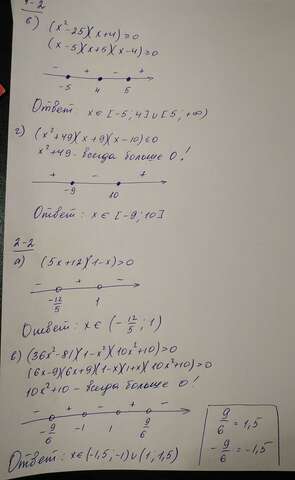 1-2
б) (x²-25)(x+4)≥0
(x-5)(x+5)(x-4)≥0
- + - +
-5 4 5
Ответ: x∈[-5;4]∪[5;+∞)
г) (x²+49)(x+9)(x-10)≤0
x²+49 - всегда больше 0!
+ - +
-9 10
Ответ: x∈[-9;10]
2-2
а) (5x+12)(1-x)>0
- + -
-12/5 1
Ответ: x∈(-12/5;1)
в) (36x²-81)(1-x²)(10x²+10)>0
(6x-9)(6x+9)(1-x)(1+x)(10x²+10)>0
10x²+10 - всегда больше 0!
- + - + -
-9/6 -1 1 9/6
9/6 = 1,5
-9/6 = -1,5
Ответ: x∈(-1,5;-1)∪(1;1,5)